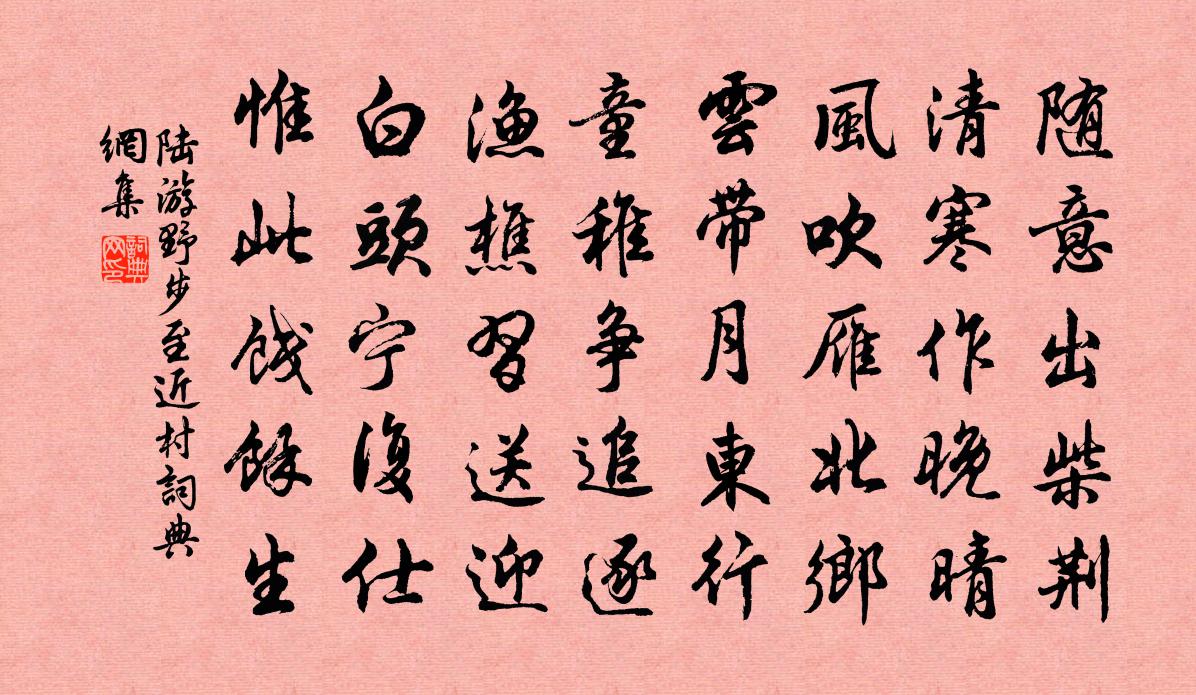 随意出柴荆
清寒作晚晴
風吹雁北鄉
雲带月東行
童稚争追逐
漁樵習送迎
白頭宁復仕
惟此餞餘生
陆游野步至近村詞典
網集
詞典网印